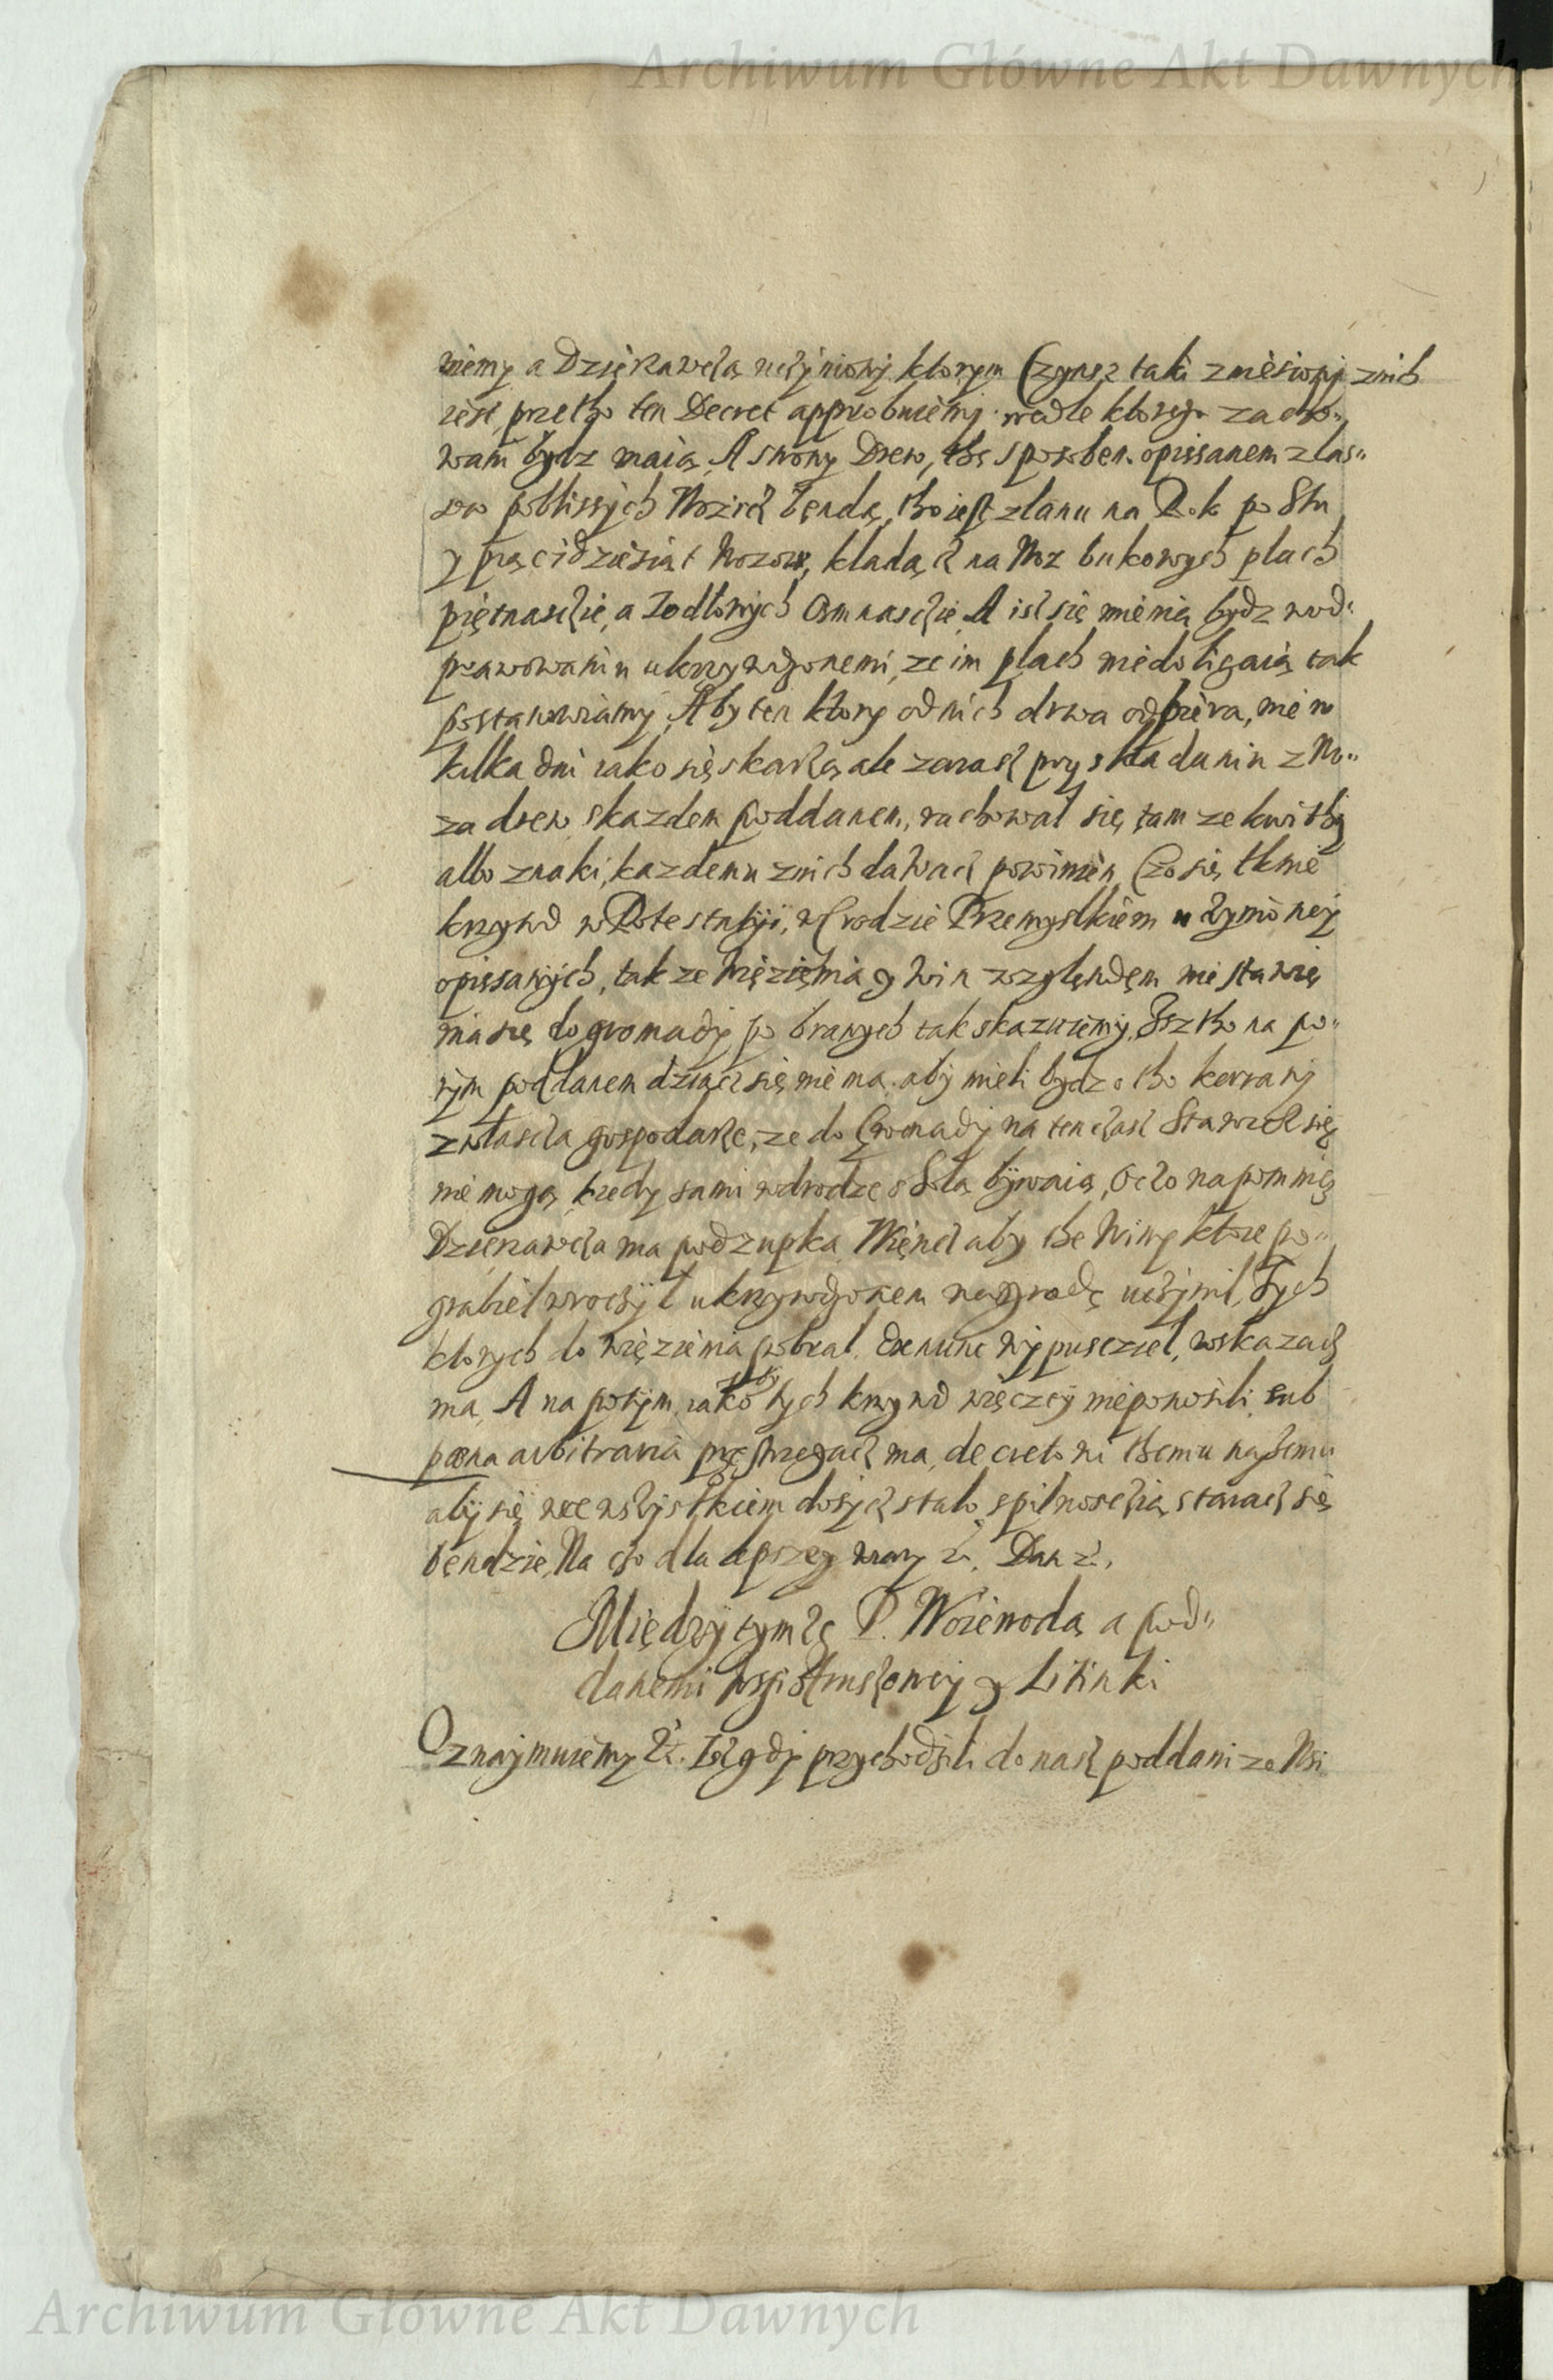 Archiwum Główne Akt Dawnych
niemy a Dzierzawczą uczyniony, ktorym Czynsz taki zniesiony znich
iest, przetho ten Decret approbuiemy wedle ktorego zacho„
wani bydz maią, A strony Drew, thę sposobem opissanem zlas„
ow poblissych Wozicz będą, tho iest zlanu na Rok po Stu
y pięcidziesiąt wozow, kladącz na Woz bukowych plach
piętnasczie, a Iodłowych Osmnasczie, A isz się mienią bydz wod„
prawowaniu ukrzywdzonemi, ze im plach niedoligaią tak
postanowiamy, Aby ten ktory od nich drwa odbiera, nie w
kilka dni iako się skarzą ale zarasz przy składaniu z Wo„
za drew skazdem poddanem, rachował się, tam ze kwithy
albo znaki, kazdemu znich dawacz powinien, Czo się tknie
krzywd w Protestatyji, w Grodzie Przemyslkiem uczynioney
opissanych, takze Więzienia y Win względem nie stawie
nia się do gromady pobranych tak skazuiemy, Isz tho na po„
tym poddanem dziacz się nie ma, aby mieli bydz o tho karrany
zwłascza gospodarze, ze do Gromady na ten czasz Stawicz się
nie mogą, kiedy sami wdrodze o Sola bywaią, Oczo napomnieę
Dzierzawcza ma podzupka, Więncz aby the Winy ktore po„
grabieł wrocził ukrzywdzonem nagrodę uczynil, Tych
ktorych do więzienia pobrał, exnunc wypuscziel, wskazacz
ma, A na potym, iako by tych krzywd więczey nieponosili sub
poena arbitraria przestrzegacz ma, decretowi themu naszemu
aby się we wszystkiem dosycz stało, spilnoscią staracz się
bendzie, Na czo dla lepszey wiary &c. Dan &c.
Między tymze P. Woiewodą a pod„
danemi wsi Struszowey y Litinki
Oznaymuiemy &c. Isz gdy przychodzili do nasz poddani ze Wsi
Archiwum Główne Akt Dawnych